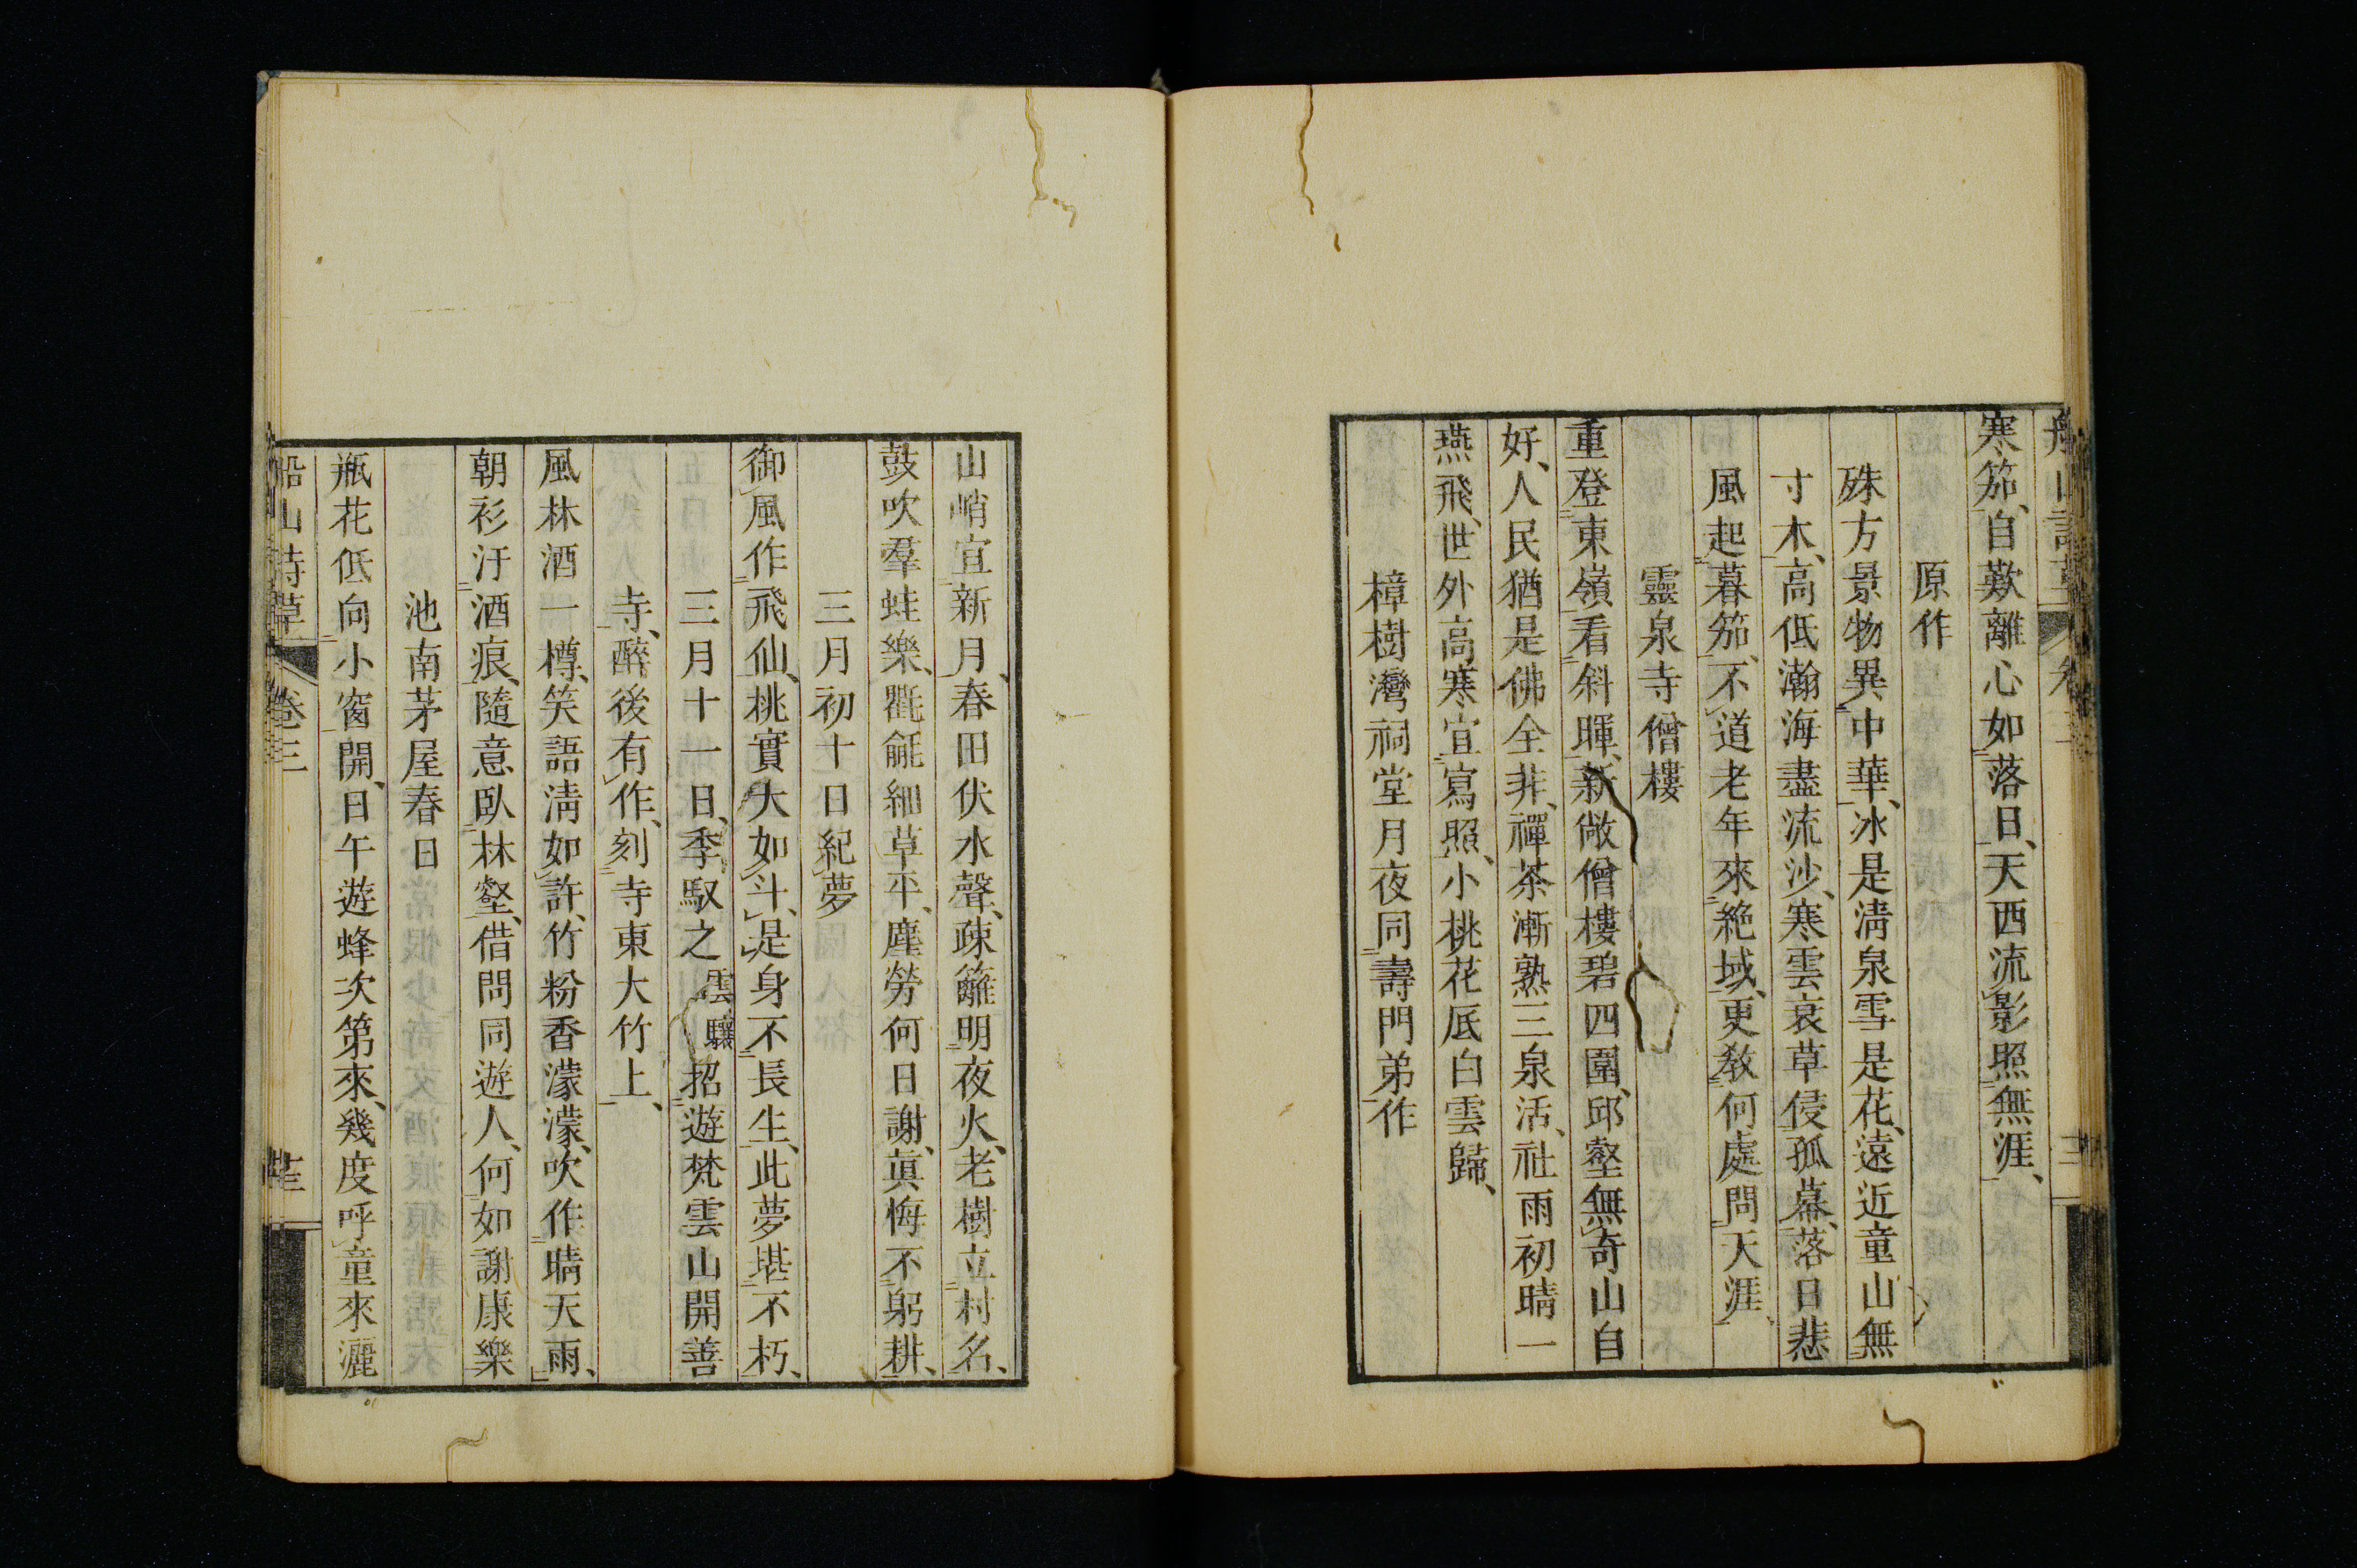 寒笳、自歎離心如落日、天西流影照無涯、
原作
殊方景物異中華、冰是淸泉雪是花、遠近童山無
寸木、高低瀚海盡流沙、寒雲衰草侵孤幕、落日悲
風起暮笳、不道老年來絶域、更敎何處問天涯、
靈泉寺僧樓
重登東嶺看斜暉、新敞僧樓碧四圍、邱壑無奇山自
好、人民猶是佛全非、禪茶漸熟三泉活、社雨初晴一
燕飛、世外高寒宜寫照、小桃花底白雲歸、
樟樹灣祠堂月夜同壽門弟作
山峭宜新月、春田伏水聲、疎籬明夜火、老樹立村名、
鼓吹羣蛙樂、氍毹細草平、塵勞何日謝、眞悔不躬耕、
三月初十日紀夢
御風作飛仙、桃實大如斗、是身不長生、此夢堪不朽、
三月十一日、季馭之雲驤招遊梵雲山開善
寺、醉後有作、刻寺東大竹上、
風林酒一樽、笑語淸如許、竹粉香濛濛、吹作晴天雨、
朝衫汙酒痕、隨意臥林壑、借問同遊人、何如謝康樂
池南茅屋春日
瓶花低向小窗開、日午遊蜂次第來、幾度呼童來灑
船山詩草 卷三